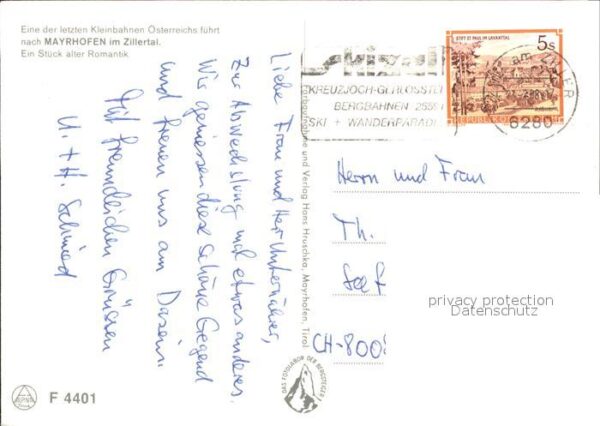 Eine der letzten Kleinbahnen Österreichs führt
nach MAYRHOFEN im Zillertal.
Ein Stück alter Romantik
Liebe Frau und Herr Unternährer,
Zur Abwechslung mal etwas anderes.
Wir geniessen diese schöne Gegend
und freuen uns am Dasein.
Mit freundlichen Grüssen
U. + H. Schmied
F 4401
Farbaufnahme und Verlag Hans Hruschka, Mayrhofen, Tirol
DAS FOTOLABOR DER BERGSTEIGER
KREUZJOCH-GERLOSSTEIN
BERGBAHNEN
SKI + WANDERPARADIES
STIFT ST. PAUL IM LAVANTTAL
5s
REPUBLIK
6280
Herrn und Frau
Th.
Seef
CH-8008
privacy protection
Datenschutz